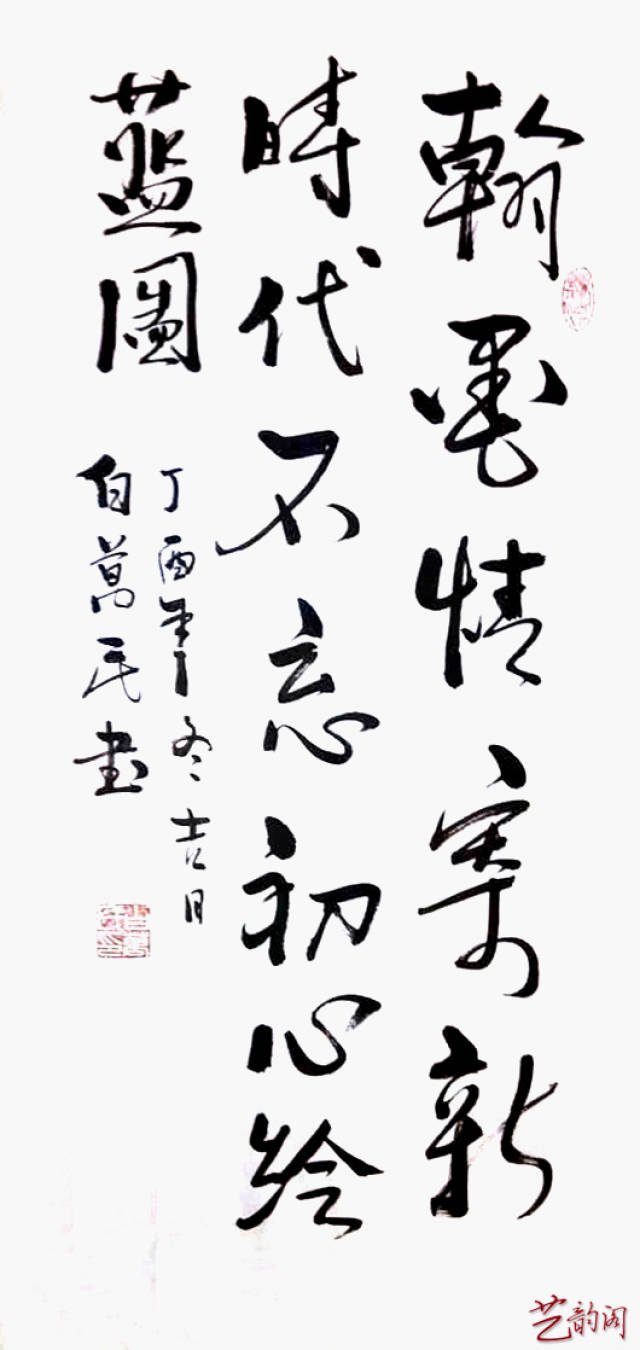 翰墨情寄新
時代不忘初心绘
蓝圖
丁酉年冬吉日
白萬民书
艺韵阁